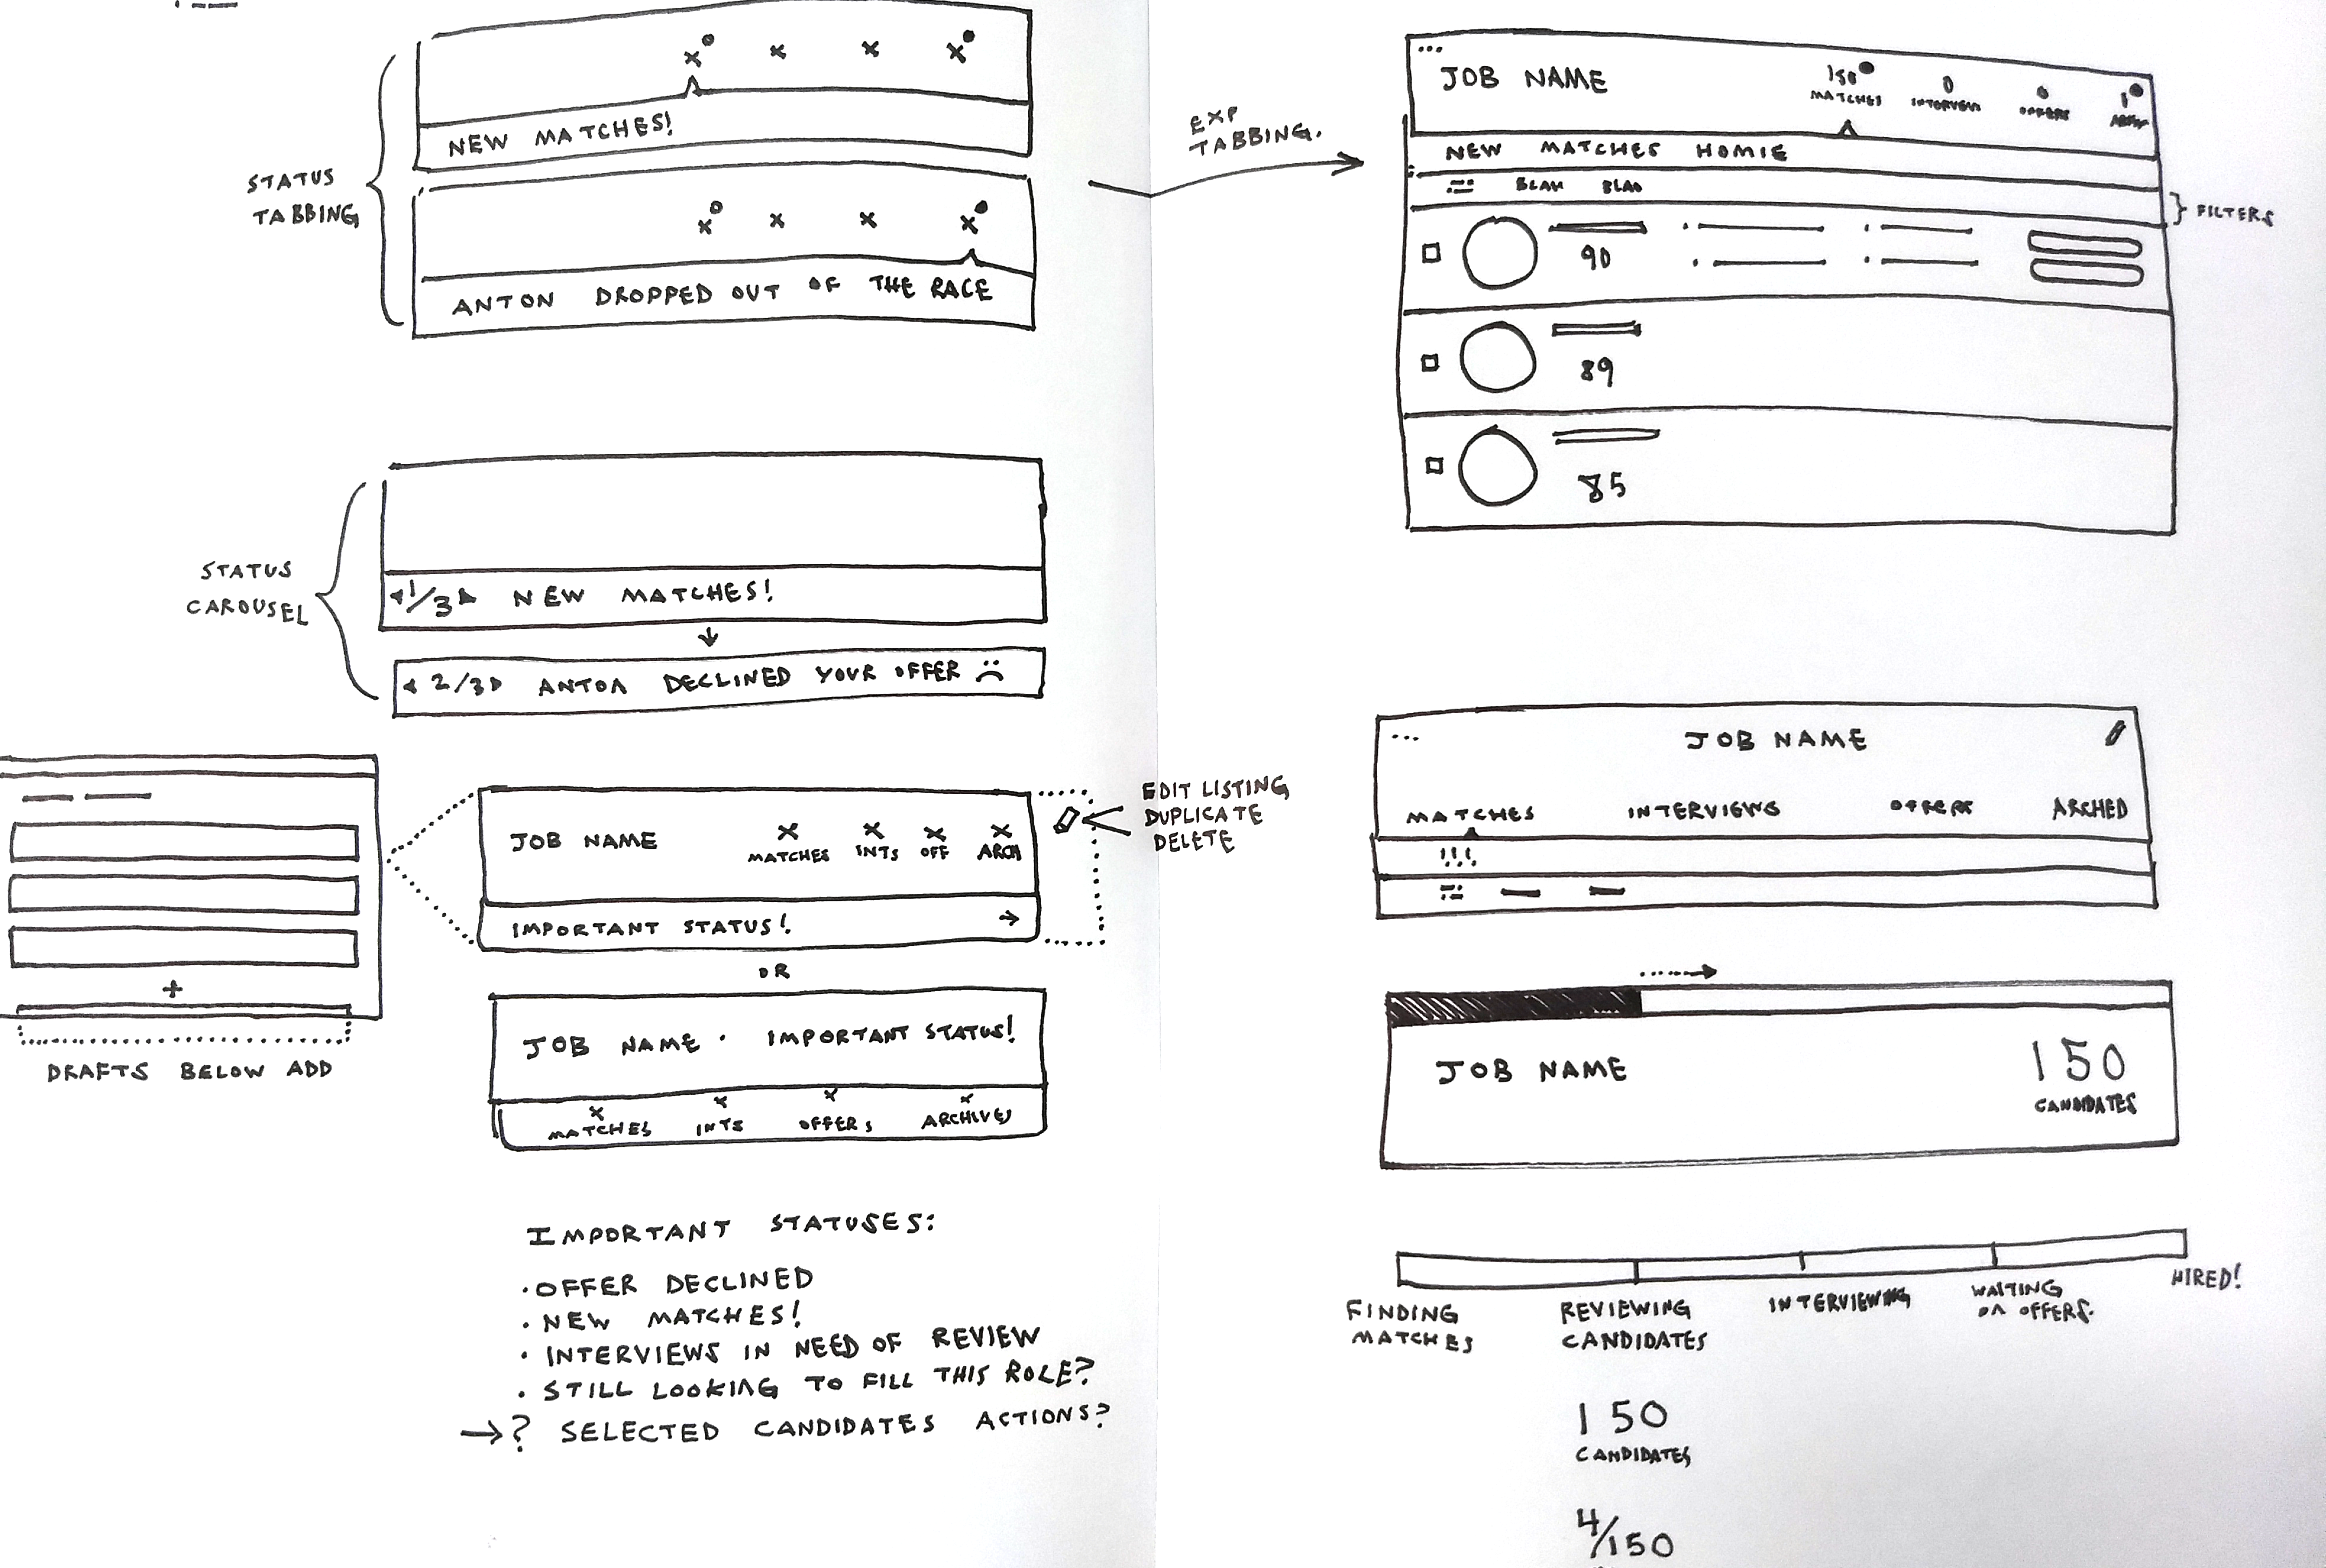 STATUS
TABBING
X X X X
NEW MATCHES!
X X X X
ANTON DROPPED OUT OF THE RACE
STATUS
CAROUSEL
1/3 NEW MATCHES!
2/3 ANTON DECLINED YOUR OFFER
+
DRAFTS BELOW ADD
JOB NAME
X X X X
MATCHES INTS OFF ARCH
IMPORTANT STATUS!
EDIT LISTING
DUPLICATE
DELETE
OR
JOB NAME · IMPORTANT STATUS!
X X X X
MATCHES INTS OFFERS ARCHIVES
IMPORTANT STATUSES:
· OFFER DECLINED
· NEW MATCHES!
· INTERVIEWS IN NEED OF REVIEW
· STILL LOOKING TO FILL THIS ROLE?
→? SELECTED CANDIDATES ACTIONS?
EXP
TABBING.
...
JOB NAME
150 0 0 1
MATCHES OFFERS
NEW MATCHES HOMIE
BLAH
FILTERS
90
89
85
...
JOB NAME
MATCHES INTERVIEWS OFFERS ARCHED
!!!
JOB NAME
150
CANDIDATES
FINDING
MATCHES
REVIEWING
CANDIDATES
INTERVIEWING
WAITING
ON OFFERS.
HIRED!
150
CANDIDATES
4/150